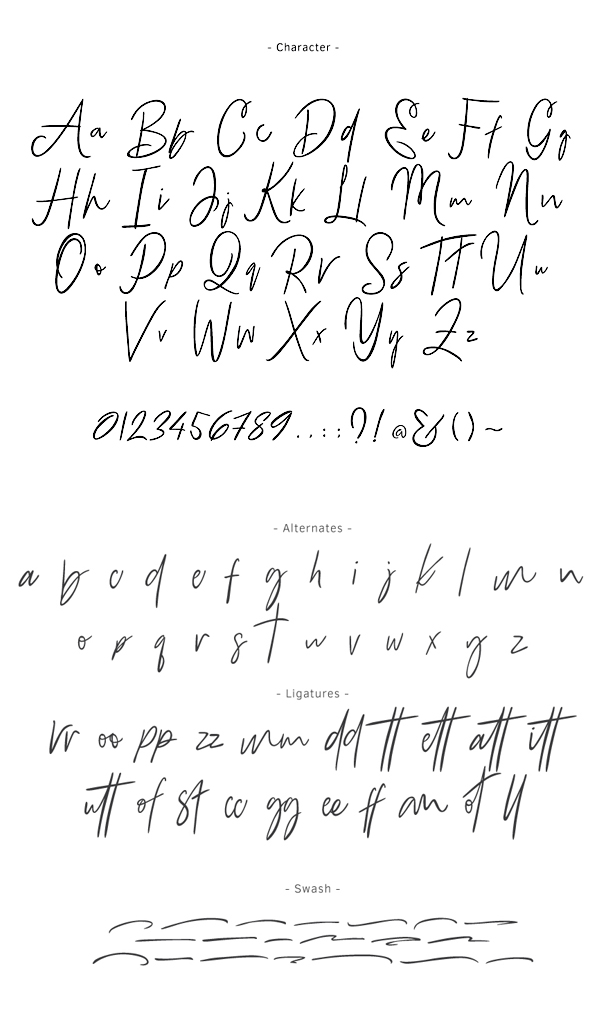 - Character -
Aa Bb Cc Dd Ee Ff Gg
Hh Ii Jj Kk Ll Mm Nn
Oo Pp Qq Rr Ss Tt Uu
Vv Ww Xx Yy Zz
0123456789.,:;?!@&()~
- Alternates -
a b c d e f g h i j k l m n
o p q r s t u v w x y z
- Ligatures -
rr oo pp zz mm dd tt ett att itt
utt of st cc gg ee ff an ot ll
- Swash -